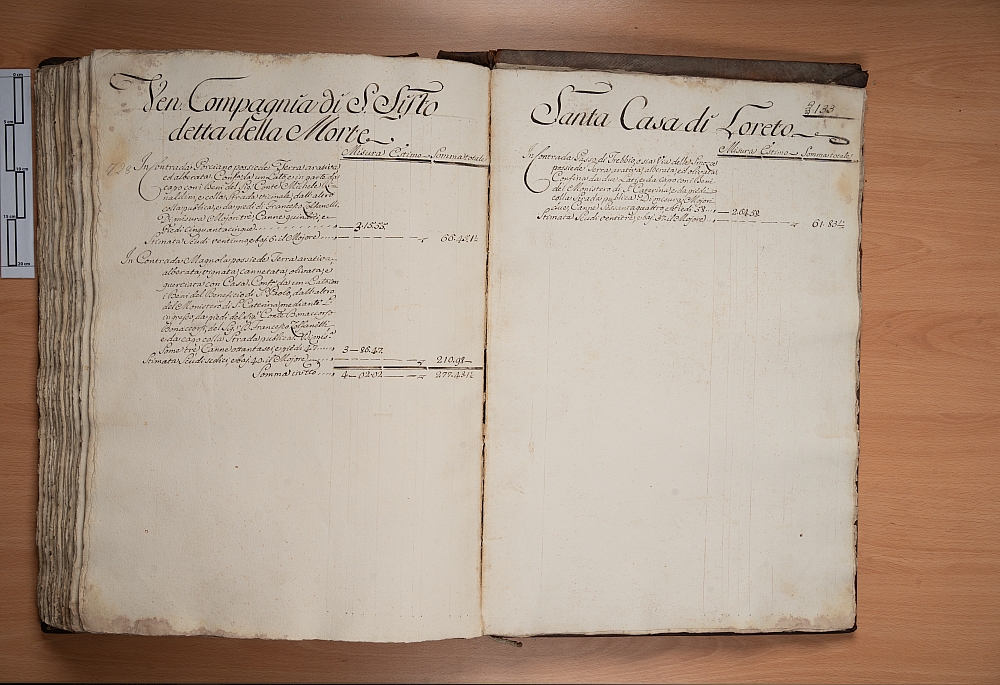 Ven. Compagnia di S. Sisto
detta della Morte
Misura Estimo Somma totale
In Contrada Porciano possiede Terra arativa
ed alberata Conf. da un Lato e in parte da
capo con i Beni del Sig. Conte Michele
e colla Strada vicinale, dall'altro
colla publica, e da piedi di Francesco
Di misura Mojori tre, Canne quindici, e
Piedi cinquantacinque 3.15.55
Stimata Scudi ventuno, e baj. 6. il Mojore 66.45
In Contrada Magnola possiede Terra arativa
alberata, vignata, cannetata, olivata, e
querciata con Casa. Conf. da un Lato con
i Beni del Beneficio di S. Paolo, dall'altro
del Monistero di S. Caterina mediante
da piedi del Sig. Conte Bonaccorso
Bonaccorsi, del Sig. Francesco
e da capo colla Strada publica. Di mis.
Some tre, Canne ottantasei, e piedi 47. 3 – 86.47.
Stimata Scudi sedici, e baj. 40. il Mojore 210.98
Somma in tto 4 – 02.02 277.43
133
Santa Casa di Loreto
Misura Estimo Somma totale
In Contrada Passo di Trebbio, o sia Vie delle
possiede Terra arativa, alberata, ed olivata
Confina da due Lati, e da Capo con i Beni
del Monistero di S. Caterina, e da piedi
colla Strada publica. Di misura Mojori
due, Canne sessantaquattro, e Piedi 58. 2.64.58
Stimata Scudi ventitre, e baj. 37. il Mojore 61.83